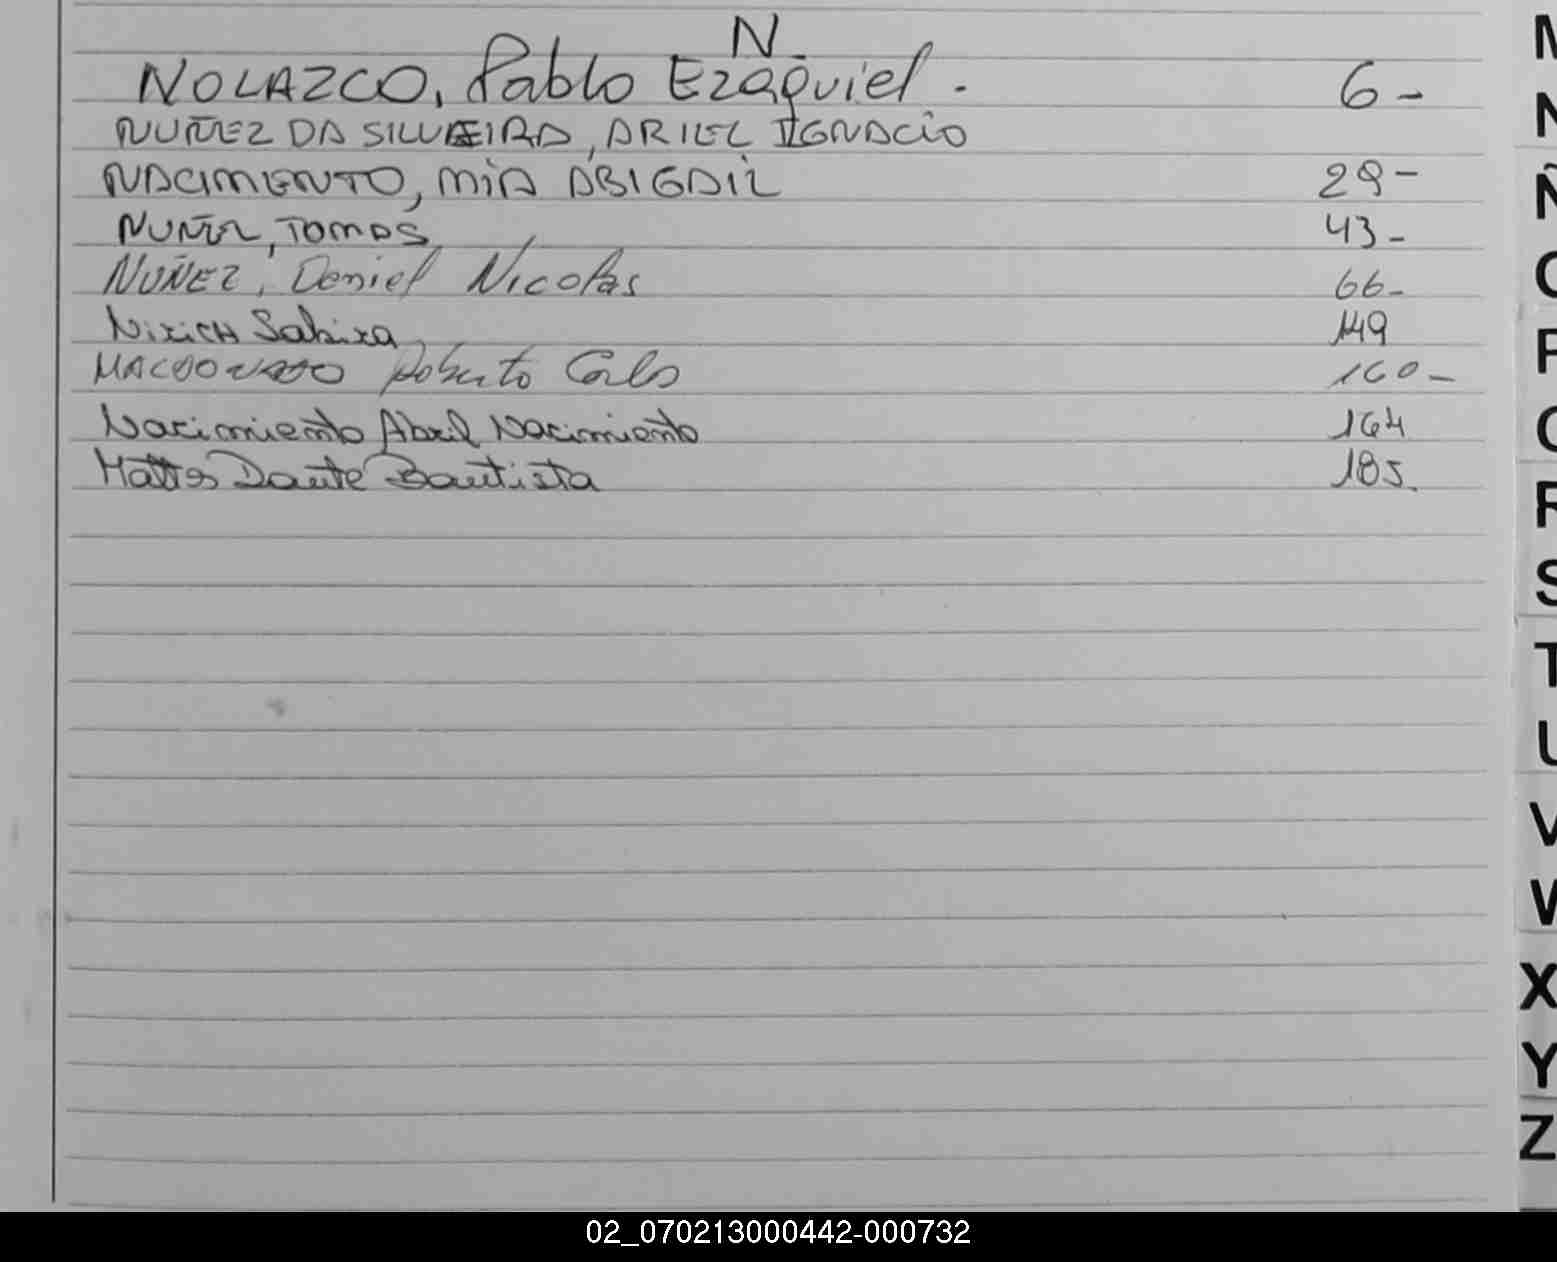 N.
NOLAZCO, Pablo Ezequiel. 6-
NUÑEZ DA SILVEIRA, ARIEL IGNACIO
NACIMENTO, MIA ABIGAIL 29-
NUÑEZ, TOMAS 43-
NUÑEZ, Daniel Nicolas 66-
Nirich Sabira 149
MACDONADO Roberto Carlos 160-
Nacimiento Abril Nacimiento 164
Mattos Dante Bautista 185.
M
N
Ñ
O
P
Q
R
S
T
U
V
W
X
Y
Z
02_070213000442-000732